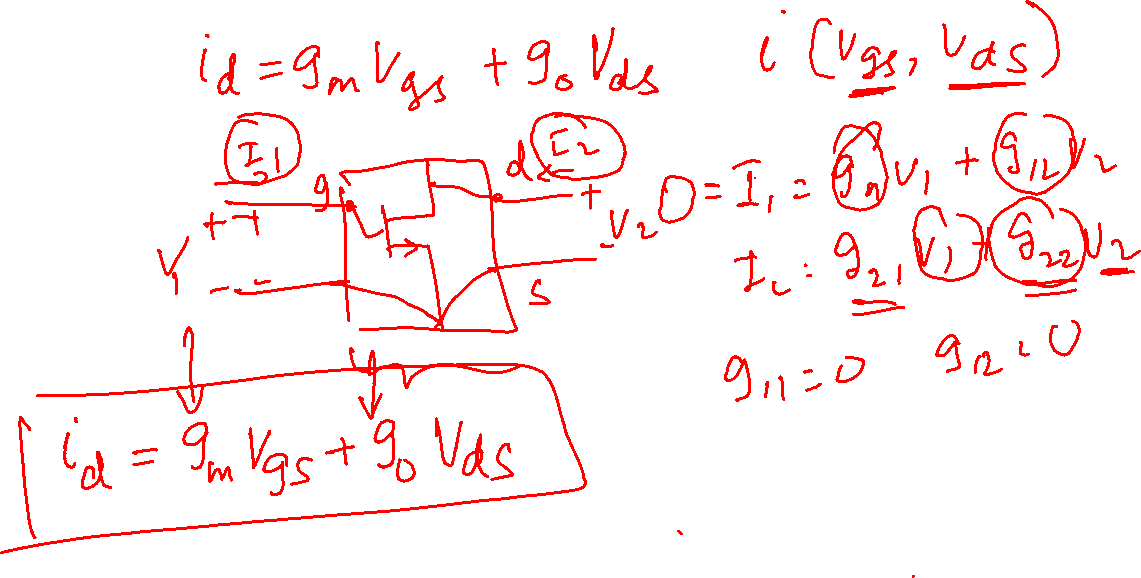 i_d = g_m V_gs + g_o V_ds
i (V_gs, V_ds)
I_1
I_2
g
d
+ +
+
V_1
V_2
- -
-
s
0 = I_1 = g_11 V_1 + g_12 V_2
I_2 = g_21 V_1 + g_22 V_2
g_11 = 0 g_12 = 0
i_d = g_m V_gs + g_o V_ds